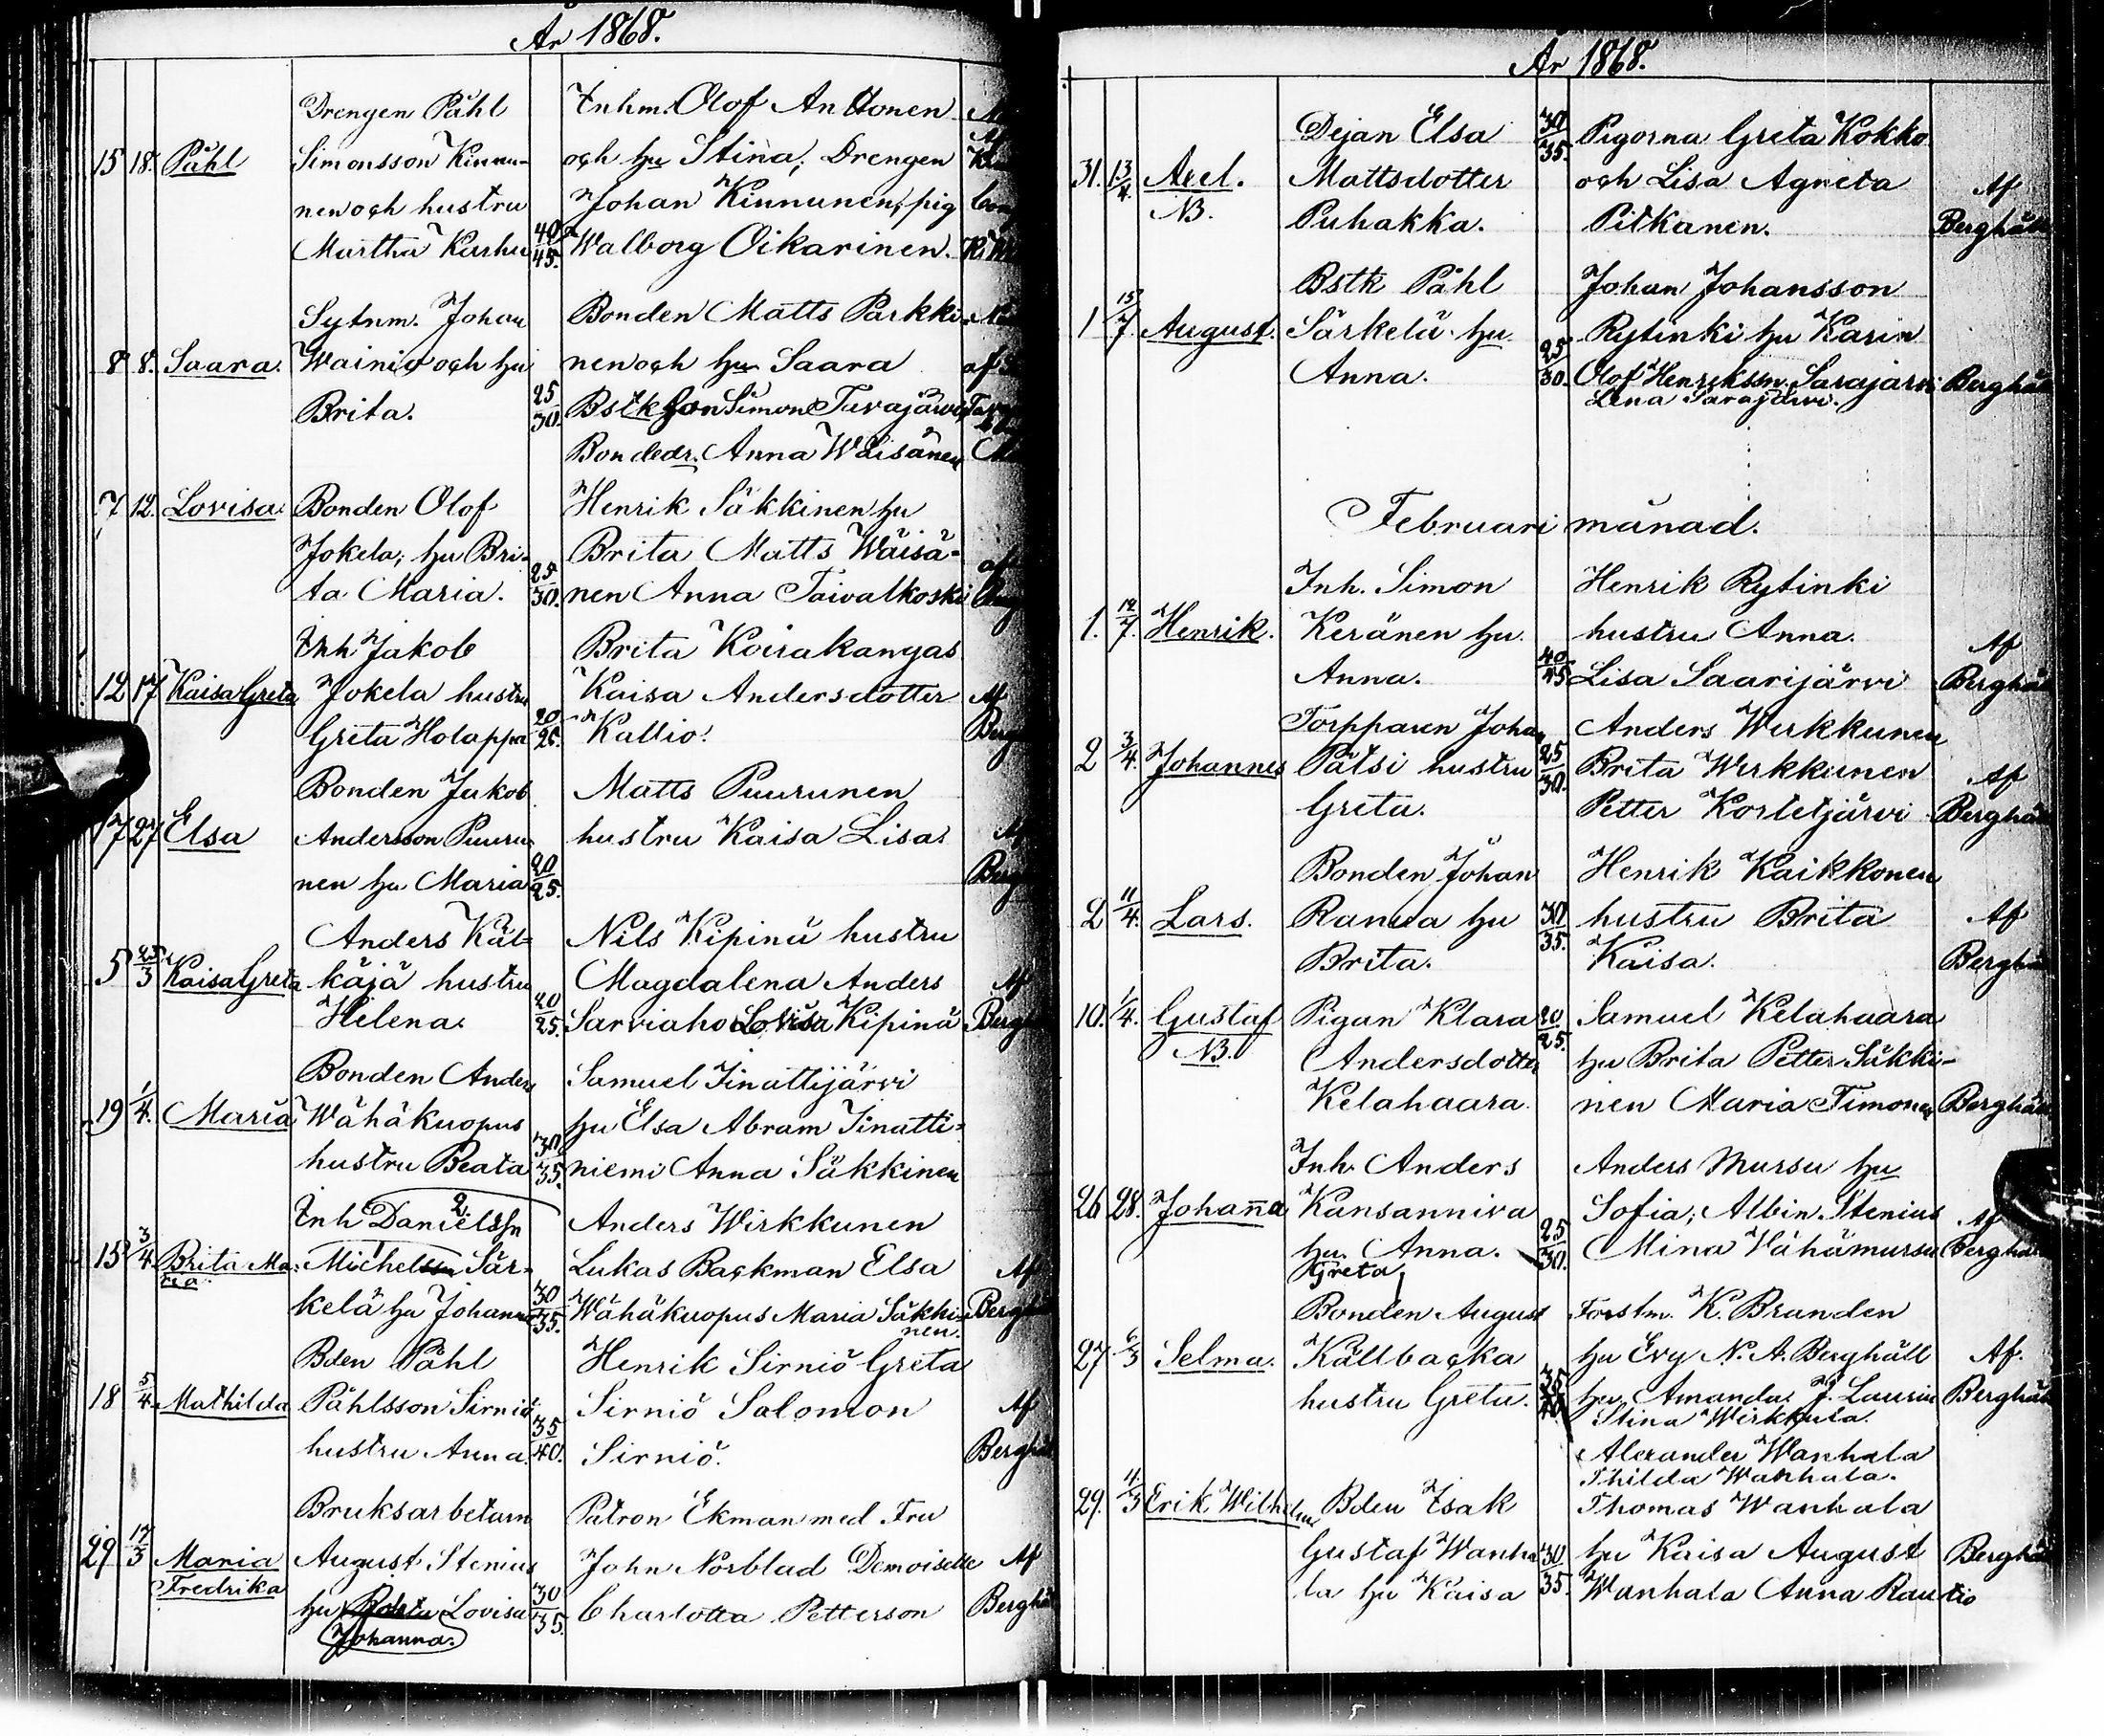 År 1868.
Drengen Påhl Inhm. Olof Anttonen
15 18. Påhl Simonsson Kinnu- och hu Stina, Drengen
nen och hustru Johan Kinnunen, pig
Martha Karhu 40/45. Walborg Oikarinen.
Sytnm. Johan Bonden Matts Parkki-
8 8. Saara. Wainio och hu nen och hu Saara af
Brita. 25/30. Bstk son Simon Tuvajärvi
Bondedr. Anna Wäisänen
7 12. Lovisa Bonden Olof Henrik Säkkinen hu
Jokela, hu Bri- Brita Matts Wäisä- af
ta Maria. 25/30. nen Anna Taivalkoski
Inh Jakob Brita Koirakangas
12 17 Kaisa Greta Jokela hustru Kaisa Andersdotter Af
Greta Holappa 20/25. Kallio. Berg
Bonden Jakob Matts Puurunen
17 27 Elsa Andersson Puuru- hustru Kaisa Lisa Af
nen hu Maria 20/25. Berg
Anders Käl- Nils Kipinä hustru
5 25/3 Kaisa Greta käjä hustru Magdalena Anders Af
Helena. 20/25. Sarviaho Lovisa Kipinä Bergh
Bonden Anders Samuel Jinattijärvi
19 1/4. Maria Wähäkuopus hu Elsa Abram Jinatti-
hustru Beata 30/35. niemi Anna Säkkinen
Inh Danielssn 2 Anders Wirkkunen
15 3/4 Brita Ma- Michelssn 1 Sär- Lukas Backman Elsa Af
ria. kelä hu Johanna 30/35. Wähäkuopus Maria Säkki- Bergh
nen.
Bden Påhl Henrik Sirniö Greta
18 5/4. Mathilda Påhlsson Sirniö Sirniö Salomon Af
hustru Anna. 35/40. Sirniö. Bergh
Bruksarbetarn Patron Ekman med Fru
29 17/3 Maria August Stenius John Norblad Demoiselle Af
Fredrika hu Lovisa 30/35. Charlotta Petterson Bergh
Johanna.
År 1868.
Dejan Elsa 30/35. Pigorna Greta Kokko
31. 13/4. Axel. Mattsdotter och Lisa Agneta Af
NB. Puhakka. Pitkanen. Berghäll
Bstk Påhl Johan Johansson
1 15/7 August. Särkelä hu Rytinki hu Karin
Anna. 25/30. Olof Henrikssn. Sarajärvi Berghäll
Lena Sarajärvi.
Februari månad.
Inh. Simon Henrik Rytinki
1. 12/7. Henrik. Keränen hu hustru Anna. Af
Anna. 40/45 Lisa Saarijärvi Berghäll
Torpparen Johan Anders Werkkunen
2 3/4. Johannes Pätsi hustru 25/30. Brita Werkkunen Af
Greta. Petter Kortetjärvi Berghäll
Bonden Johan Henrik Kaikkonen
2 11/4. Lars. Ranua hu 30/35. hustru Brita Af
Brita. Kaisa. Berghäll
10. 1/4. Gustaf Pigan Klara 20/25. Samuel Kelahaara
NB. Andersdotter hu Brita Petter Säkki-
Kelahaara. nen Maria Timonen Berghäll
Inh. Anders Anders Mursu hu
26 28. Johanna Kansanniva Sofia, Albin Stenius Af
hu. Anna. 25/30. Mina Vähämursu Berghäll
Greta
Bonden August Forstm. K. Branden
27 6/3 Selma. Källbacka hu Evy N. A. Berghäll Af.
hustru Greta. 35/40 hu Amanda J. Laurin Berghäll
Stina Wirkkula.
Alexander Wanhala
Thilda Wanhala.
29. 4/3 Erik Wilhelm Bden Isak Thomas Wanhala
Gustaf Wanha- 30/35. hu Kaisa August Berghäll
la hu Kaisa Wanhala Anna Rautio